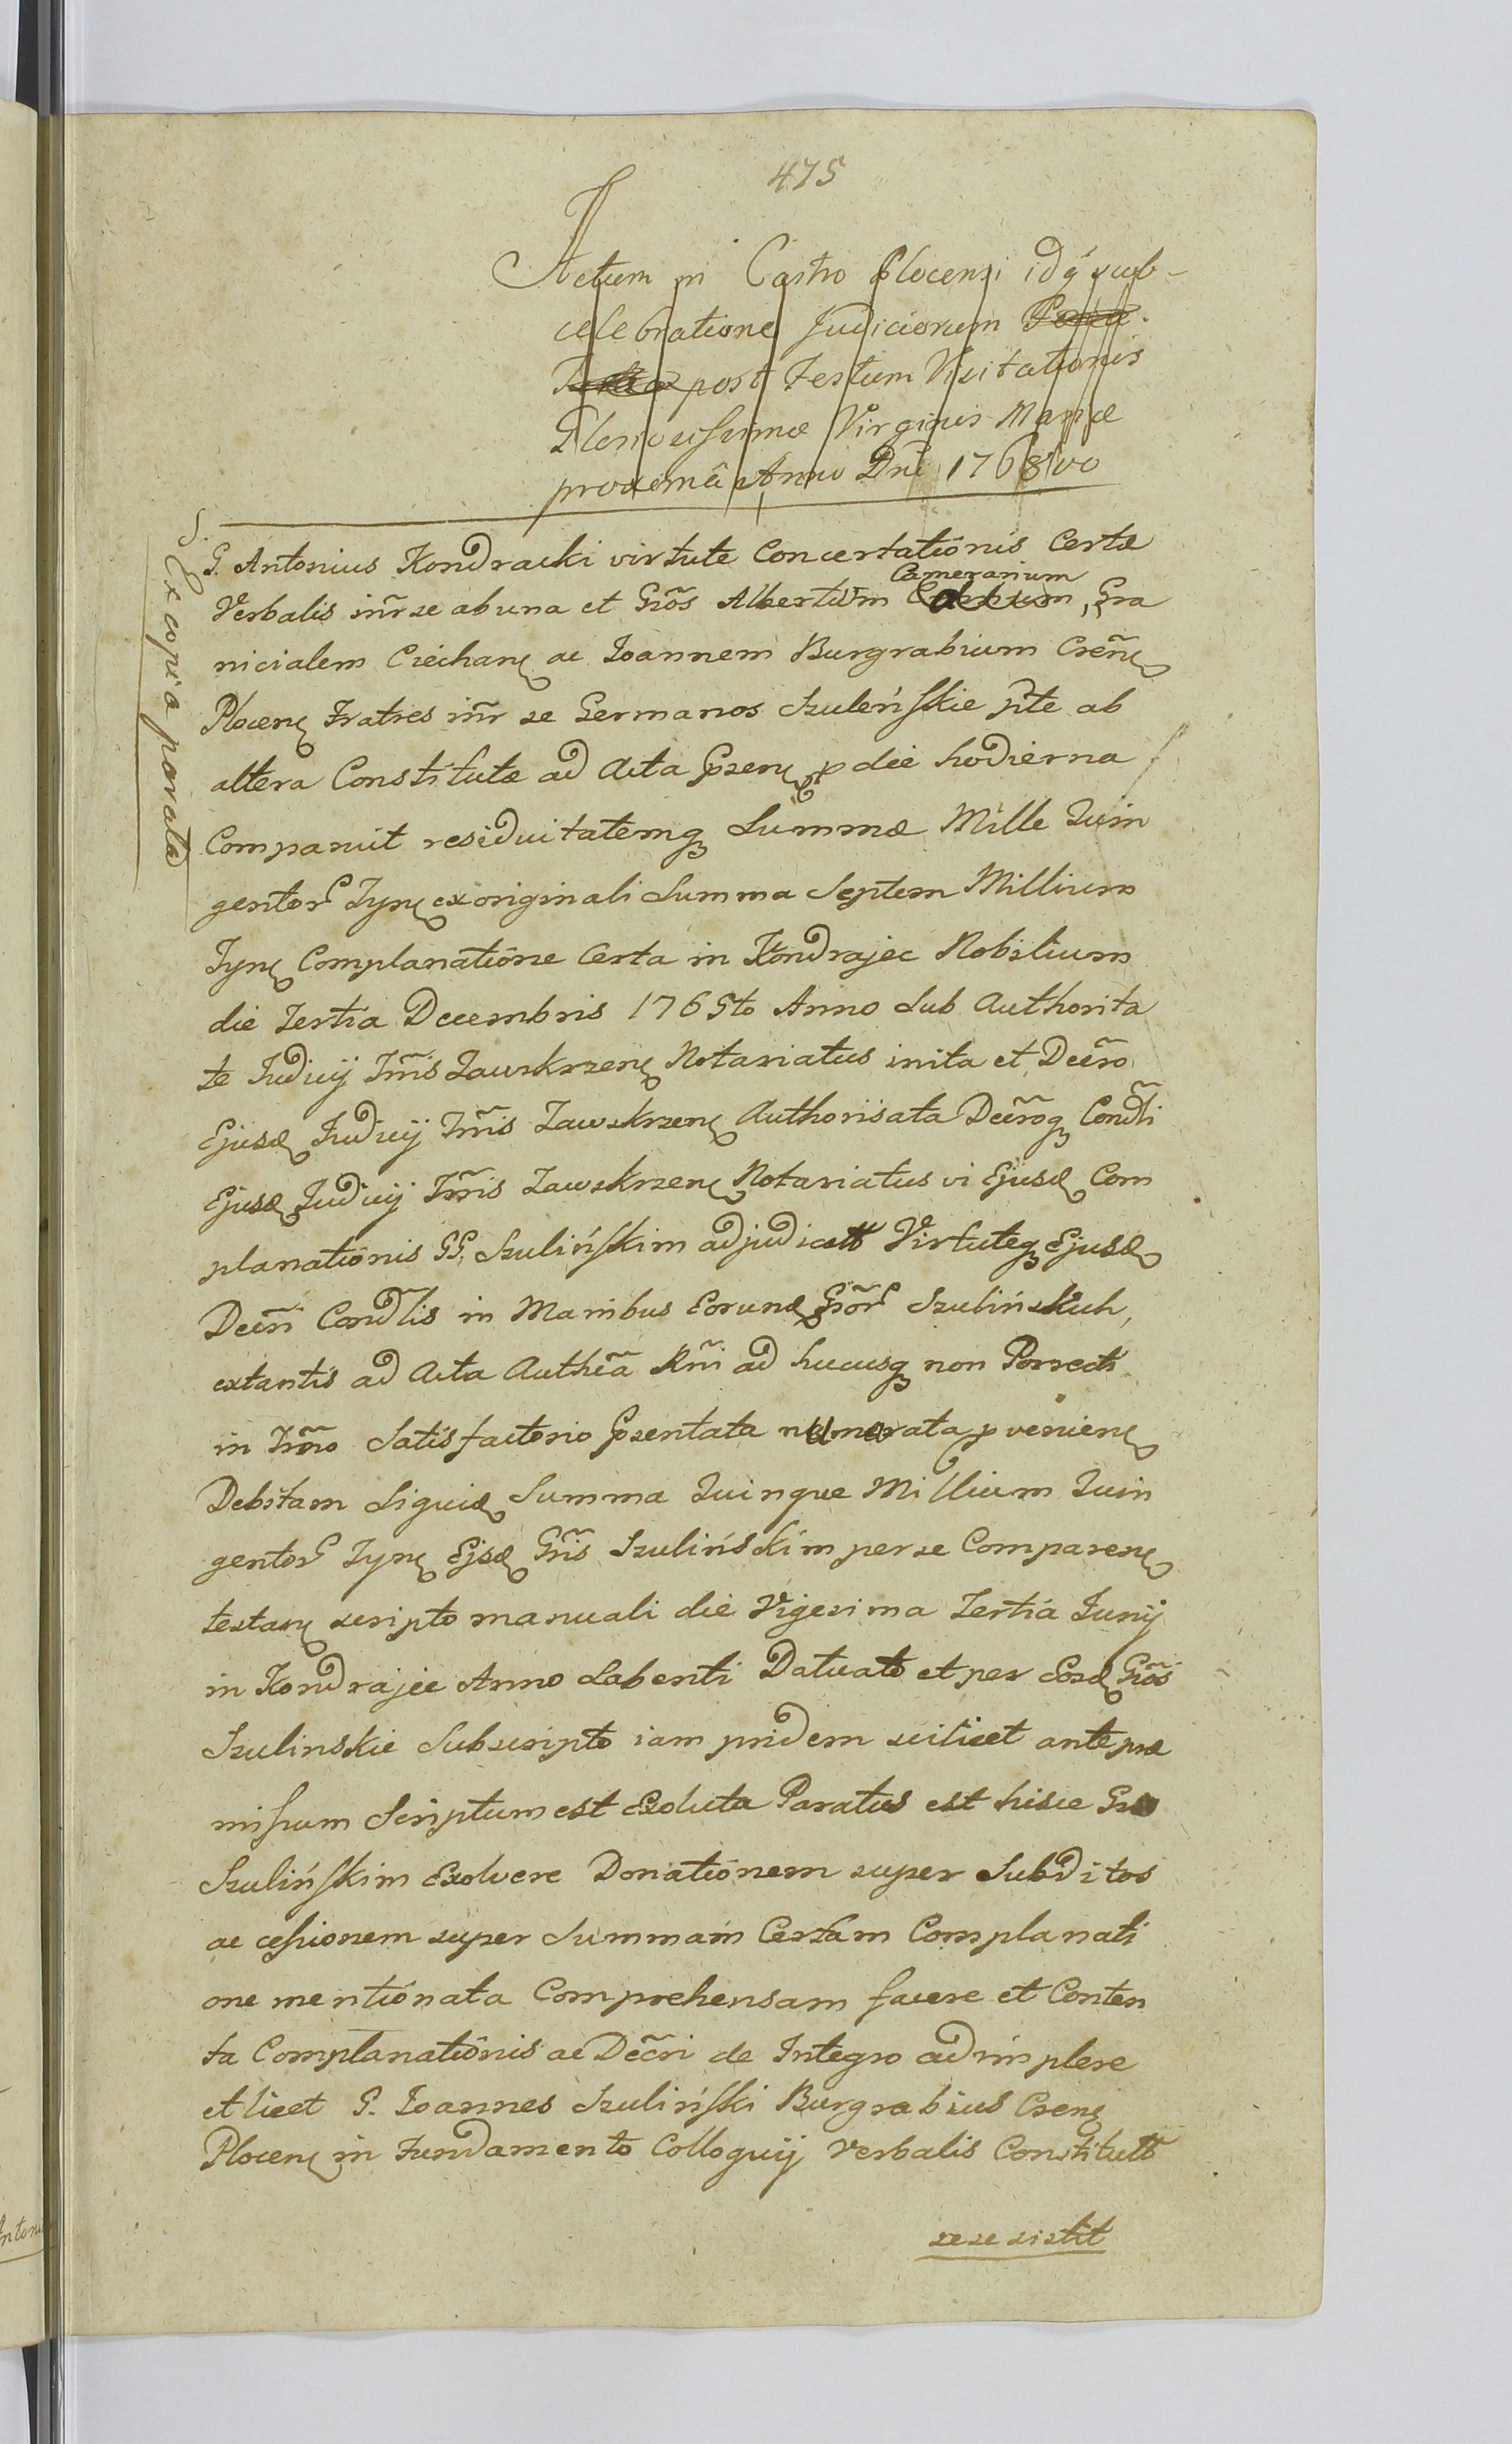 475
Actum in Castro Plocensi idq̃ sub-
celebratione Judiciorum
post Festum Visitationis
Gloriosissimæ Virginis Mariæ
proximâ Anno Dni 1768vo
S.
Ex copia parata
G. Antonius Kondracki virtute Concertationis Certæ
Camerarium
Verbalis inr̃ se ab una et Gñōs Albertum Gra
nicialem Ciechanę ac Joannem Burgrabium Cseñę
Plocenę Fratres inr̃ se Germanos Szuleńskie pte ab
altera Constitutæ ad Acta Gpsenę p die hodierna
Comparuit residuitatemqȝ Summæ Mille Quin
gentor Tynę ex originali Summa Septem Millium
Tynę Complanatiōne Certa in Kondrajec Nobilium
die Tertia Decembris 1765to Anno Sub Authorita
te Judicij Trr̃is Zawskrzenę Notariatus inita et Decr̃o
Ejusdę Judicij Trr̃is Zawskrzenę Authorisata Decr̃oqȝ Condl̃i
Ejusdę Judicij Trr̃is Zawskrzenę Notariatus vi Ejusdę Com
planatiōnis GG. Szulińskim adjudicatt Virtuteqȝ Ejusdę
Decr̃i Condl̃is in Manibus Eorundę Gñōr Szulińskich,
extantis ad Acta Authc̃a Rñi ad hucusqȝ non Porrecti
in Tr̃mo Satisfactorio Gpsentata numerata p venienę
Debitam Siquidę Summa Quinque Millium Quin
gentor Tynę Ejsdę Gñis Szulińskim per se Comparenę
testanę scripto manuali die Vigesima Tertia Junij
in Kondrajec Anno Labenti Datuato et per Eosdę Gñōs
Szulinskie Subscripto iam pridem scilicet ante præ
missum Scriptum est Exoluta Paratus est hisce
Szulińskim Exolvere Donatiōnem super Subditos
ac cessionem super Summam Certam Complanati
one mentiōnata Comprehensam facere et Conten
ta Complanatiōnis ac Decr̃i de Integro adimplere
et licet G. Joannes Szuliński Burgrabius Csenę
Plocenę in Fundamento Colloquij Verbalis Constitutt
sese sistit